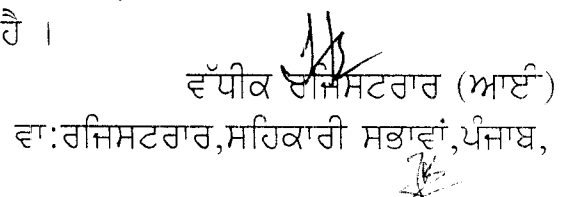 ਹੈ ।
ਵੱਧੀਕ ਰਜਿਸਟਰਾਰ (ਆਈ)
ਵਾ:ਰਜਿਸਟਰਾਰ,ਸਹਿਕਾਰੀ ਸਭਾਵਾਂ,ਪੰਜਾਬ,